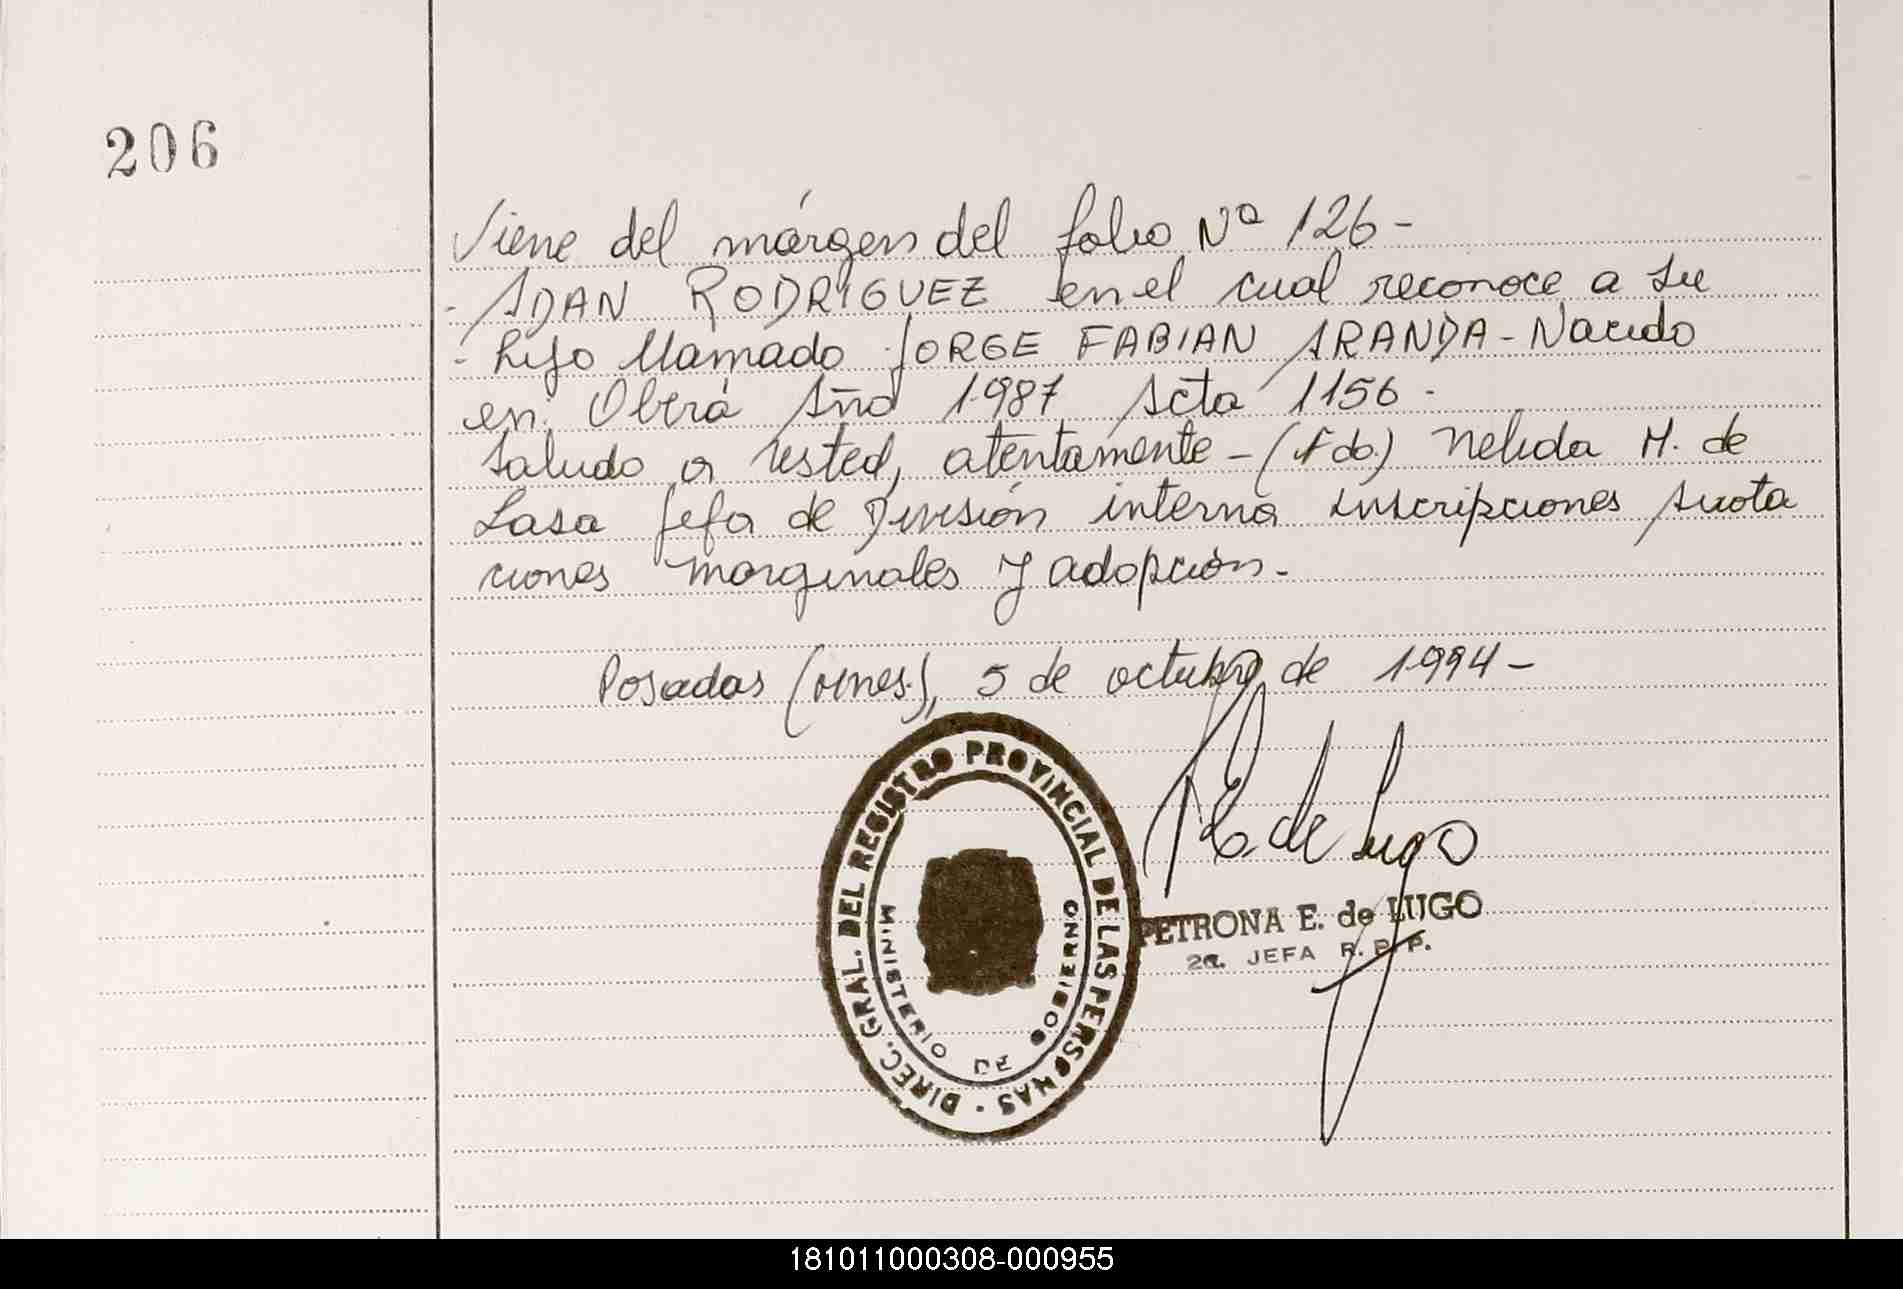 206
Viene del márgen del folio Nº 126-
- ADAN RODRIGUEZ en el cual reconoce a su
- hijo llamado JORGE FABIAN ARANDA - Nacido
en Oberá Año 1987 Acta 1156 -
Saludo a Usted, atentamente - (Fdo.) Nelida M. de
Lasa Jefa de División interna inscripciones Anota
ciones marginales y adopción.-
Posadas (mnes.), 5 de octubre de 1994-
P. E. de Lugo
DIREC. GRAL. DEL REGISTRO PROVINCIAL DE LAS PERSONAS
MINISTERIO DE GOBIERNO
PETRONA E. de LUGO
2a. JEFA R. P. P.
181011000308-000955